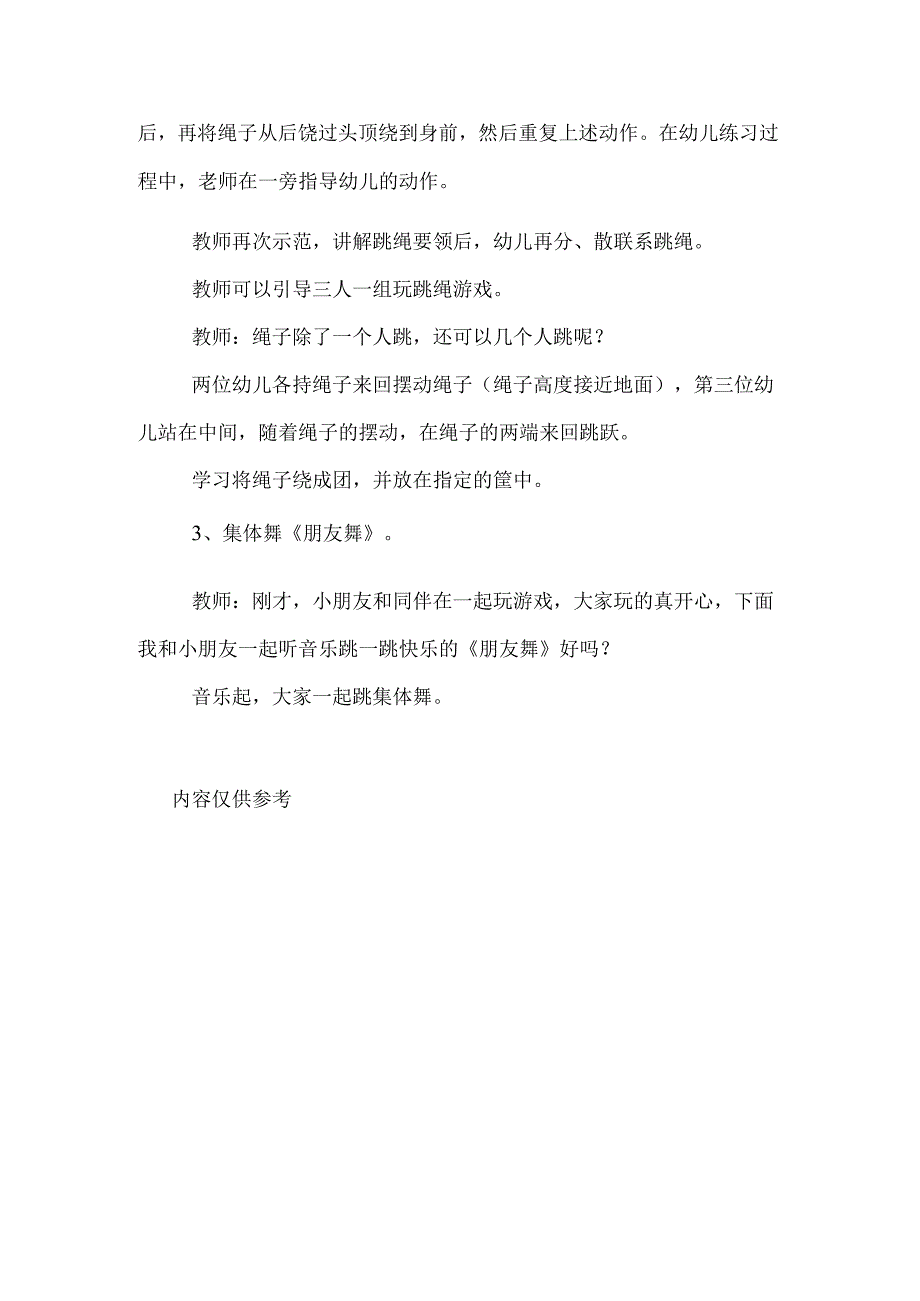 后，再将绳子从后饶过头顶绕到身前，然后重复上述动作。在幼儿练习过
程中，老师在一旁指导幼儿的动作。
教师再次示范，讲解跳绳要领后，幼儿再分、散联系跳绳。
教师可以引导三人一组玩跳绳游戏。
教师：绳子除了一个人跳，还可以几个人跳呢？
两位幼儿各持绳子来回摆动绳子（绳子高度接近地面），第三位幼
儿站在中间，随着绳子的摆动，在绳子的两端来回跳跃。
学习将绳子绕成团，并放在指定的筐中。
3、集体舞《朋友舞》。
教师：刚才，小朋友和同伴在一起玩游戏，大家玩的真开心，下面
我和小朋友一起听音乐跳一跳快乐的《朋友舞》好吗？
音乐起，大家一起跳集体舞。
内容仅供参考